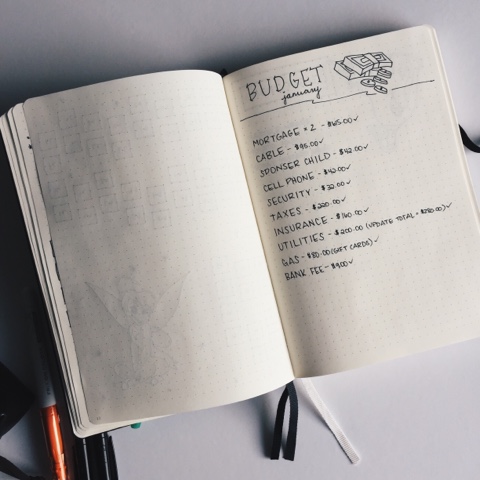 BUDGET
january
MORTGAGE x 2 - $165.00 ✓
CABLE - $95.00 ✓
SPONSER CHILD - $42.00 ✓
CELL PHONE - $42.00 ✓
SECURITY - $32.00 ✓
TAXES - $220.00 ✓
INSURANCE - $160.00 ✓
UTILITIES - $200.00 (UPDATE TOTAL = $280.00) ✓
GAS - $80.00 (GIFT CARDS) ✓
BANK FEE - $9.00 ✓